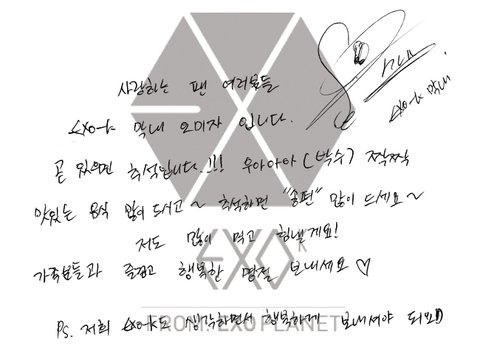 사랑하는 팬 여러분들
EXO-K 막내 오미자 입니다.
곧 있으면 추석입니다.!!! 우아아아 (박수) 짝짝짝
맛있는 음식 많이 드시고~ 추석하면 "송편" 많이 드세요~
저도 많이 먹고 힘낼게요!
가족분들과 즐겁고 행복한 명절 보내세요♡
Ps. 저희 EXO-K도 생각하면서 행복하게 보내셔야 되요!)
EXO-K 막내
EXO K
FROM EXO PLANET